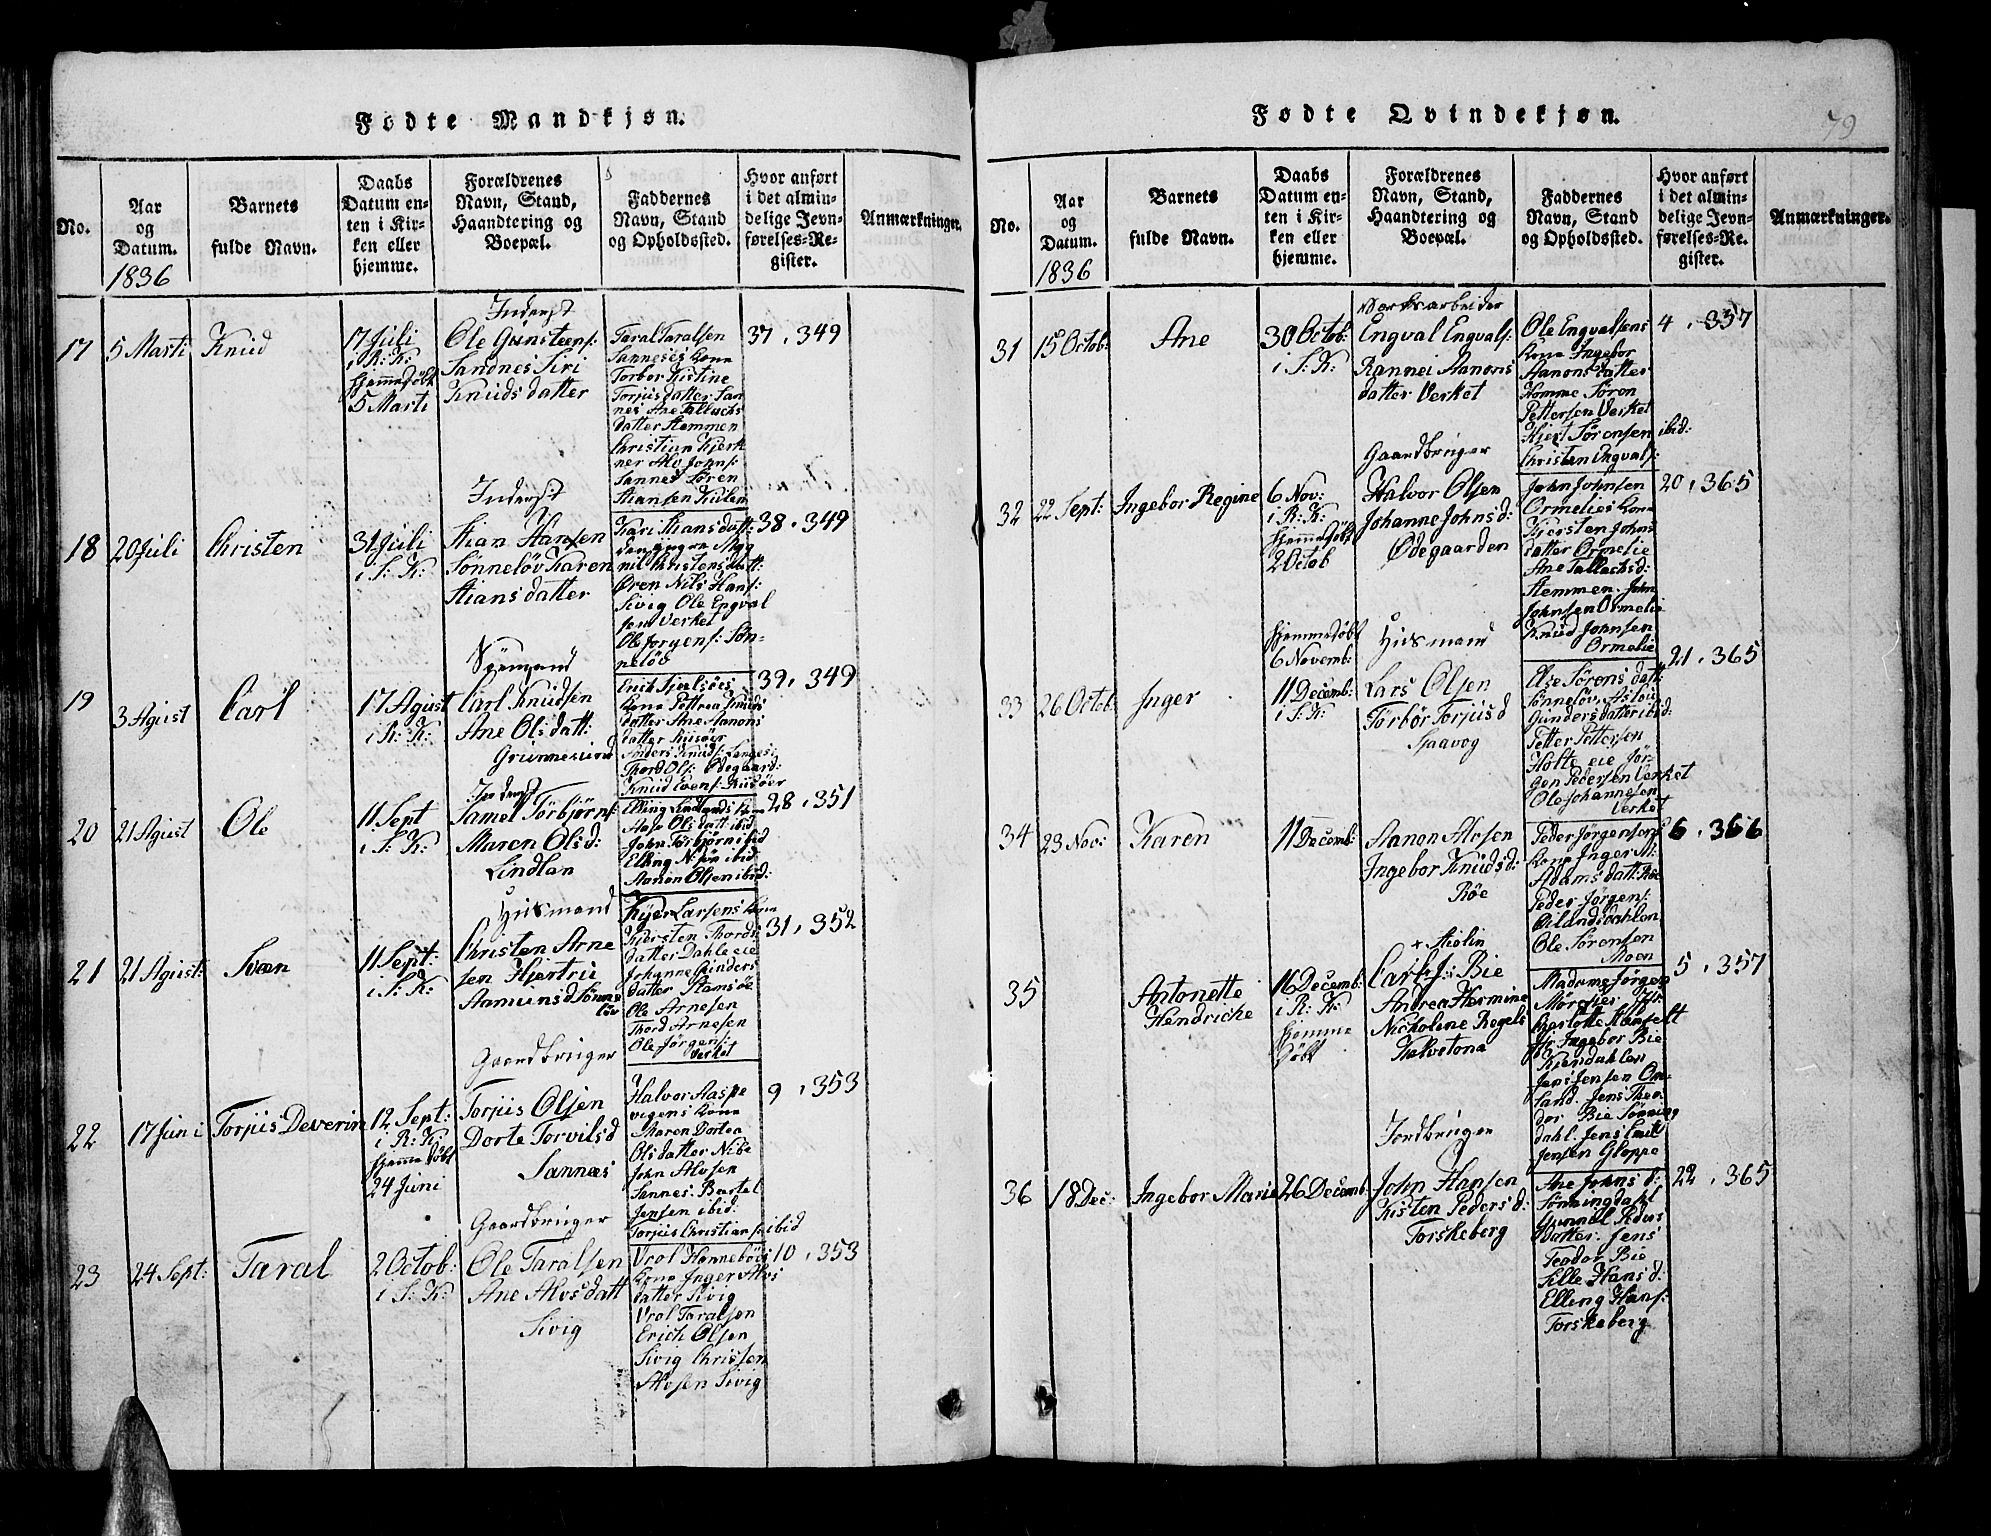 Fødte Mandkjøn.
No.
Aar
og
Datum.
1836
Barnets
fulde Navn.
Daabs
Datum en-
ten i Kir-
ken eller
hjemme.
Forældrenes
Navn, Stand,
Haandtering og
Boepæl.
Faddernes
Navn, Stand
og Opholdssted.
Hvor anført
i det almin-
delige Jevn-
førelses-Re-
gister.
Anmærkninger.
17
5 Marti
Knud
17 Juli
i R: K:
hjemmedøbt
5 Marti
Inderst
Ole Gunsteens:
Sandnes Siri
Knudsdatter
Taral Taralsen
Sannesis Kone
Torbor Kistine
Torjusdatter San
nes Ane Tallachs
datter Stemmen
Christian Kjerk
ner Alv Johns:
Sannes Søren
Stiansen
37, 349
18
20 Juli
Christen
31 Juli
i S: K:
Inderst
Stian Hansen
Sønneløv Karen
Stiansdatter
Kari Stiansdatt:
Christensdatt:
Øren Nils Hans:
Sivig Ole Engval
sen Verket
Ole Jørgens: Søn-
neløv
38, 349
19
3 Agust
Carl
17 Agust
i R: K:
Sømand
Carl Knudsen
Ane Olsdatt:
Grunnesund
Kone Petrea Knuds
datter Ane Aanons
datter Riisøer
Anders Knuds:
Thord Ols: Ødegaard:
Knud Evens: Riisøer
39, 349
20
21 Agust
Ole
11 Sept
i S: K:
Inderst
Samel Torbjørns:
Maren Olsd:
Lindlan
Elling Lindlands Kone
Aase Olsdatt ibid
John Torbjørn ibid
Elling N: søn ibid
Aanon Olsen ibid:
28, 351
21
21 Agust:
Svæn
11 Sept:
i S: K:
Husmand
Christen Arne
sen Hjertru
Aamunsd Sønne
løv
Larsens Kone
Kjersten Thords
datter Dahle eie
Johanne Gunders
datter Stamsøe
Ole Arnesen
Thord Arnesen
Ole Jørgens:
Verket
31, 352
22
17 Juni
Torjus Severin
12 Sept:
i R: K:
hjemmedøbt
24 Juni
Gaardbruger
Torjus Olsen
Dorte Torvilsd
Sannæs
Halvor Haspe
vigens Kone
Maren Dortea
Olsdatter Nibe
John Alvsen
Sannes. Bartel
Jensen ibid:
Torjus Christians: ibid
9, 353
23
24 Sept:
Taral
2 Octob:
i S: K:
Gaardbruger
Ole Taralsen
Ane Alvsdatt
Sivig
Vrol Hannebøes
Kone Inger Alvs
datter Sivig
Vrol Taralsen
Erich Olsen
Sivig Christen
Alvsen Sivig
10, 353
Fødte Qvindekjøn.
79
No.
Aar
og
Datum.
1836
Barnets
fulde Navn.
Daabs
Datum en-
ten i Kir-
ken eller
hjemme.
Forældrenes
Navn, Stand,
Haandtering og
Boepæl.
Faddernes
Navn, Stand
og Opholdssted.
Hvor anført
i det almin-
delige Jevn-
førelses-Re-
gister.
Anmærkninger.
31
15 Octob:
Ane
30 Octob:
i S: K:
Værksarbeider
Engval Engvals:
Rannei Aanons
datter Verket
Ole Engvalsens
Kone Ingebor
Aanonsdatter
Homme Søren
Pettersen Verket
Hjert Sørensen ibid:
Christen Engvals:
4, 357
32
22 Sept:
Ingebor Regine
6 Nov:
i R: K:
hjemmedøbt
2 Octob
Gaardbruger
Halvor Olsen
Johanne Johnsd:
Ødegaarden
John Johnsen
Ormelies Kone
Kjersten Johns
datter Ormelie
Ane Tallachsd:
Stemmen. John
Johnsen Ormelie
Knud Johnsen
Ormelie
20, 365
33
26 Octob
Inger
hjemmedøbt
6 Novemb:
11 Decemb:
i S: K:
Husmand
Lars Olsen
Torbor Torjusd
Sjaavog
Else Sørensdatt
Sønneløv,
Gundersdatter ibid:
Petter Pettersen
Holte eie Jør-
gen Pedersen Verket
Ole Johannesen
Verket
21, 365
34
23 Nov:
Karen
11 Decemb:
Aanon Alvsen
Ingebor Knudsd:
Røe
Peder Jørgensens
Kone Inger M:
Adamsdatt: Røe
Peder Jørgens:
Eilandsdahlen
Ole Sørensen
Moen
6, 366
35
Antonette
Hendriche
16 Decemb:
i R: K:
hjemme
døbt
Carl J: Bie
Andrea Hermine
Nicholine Regels
Kalvetona
Madame Jørgen
Charlotte Hanselt
Jfr: Ingebor Bie
Kjendahlen
Jens Jensen
Jens Theo
dor Bie Sønning
dahl. Jens Emil
Jensen Gloppe
5, 357
36
18 Dec:
Ingebor Marie
26 Decemb
Jordbruger
John Hansen
Kisten Pedersd:
Torskeberg
Ane Johnsd:
Sønningdahl
Gunnel Peders
datter. Jens
Teodor Bie
Sille Hansd:
Elling Hans:
Torskeberg
22, 365